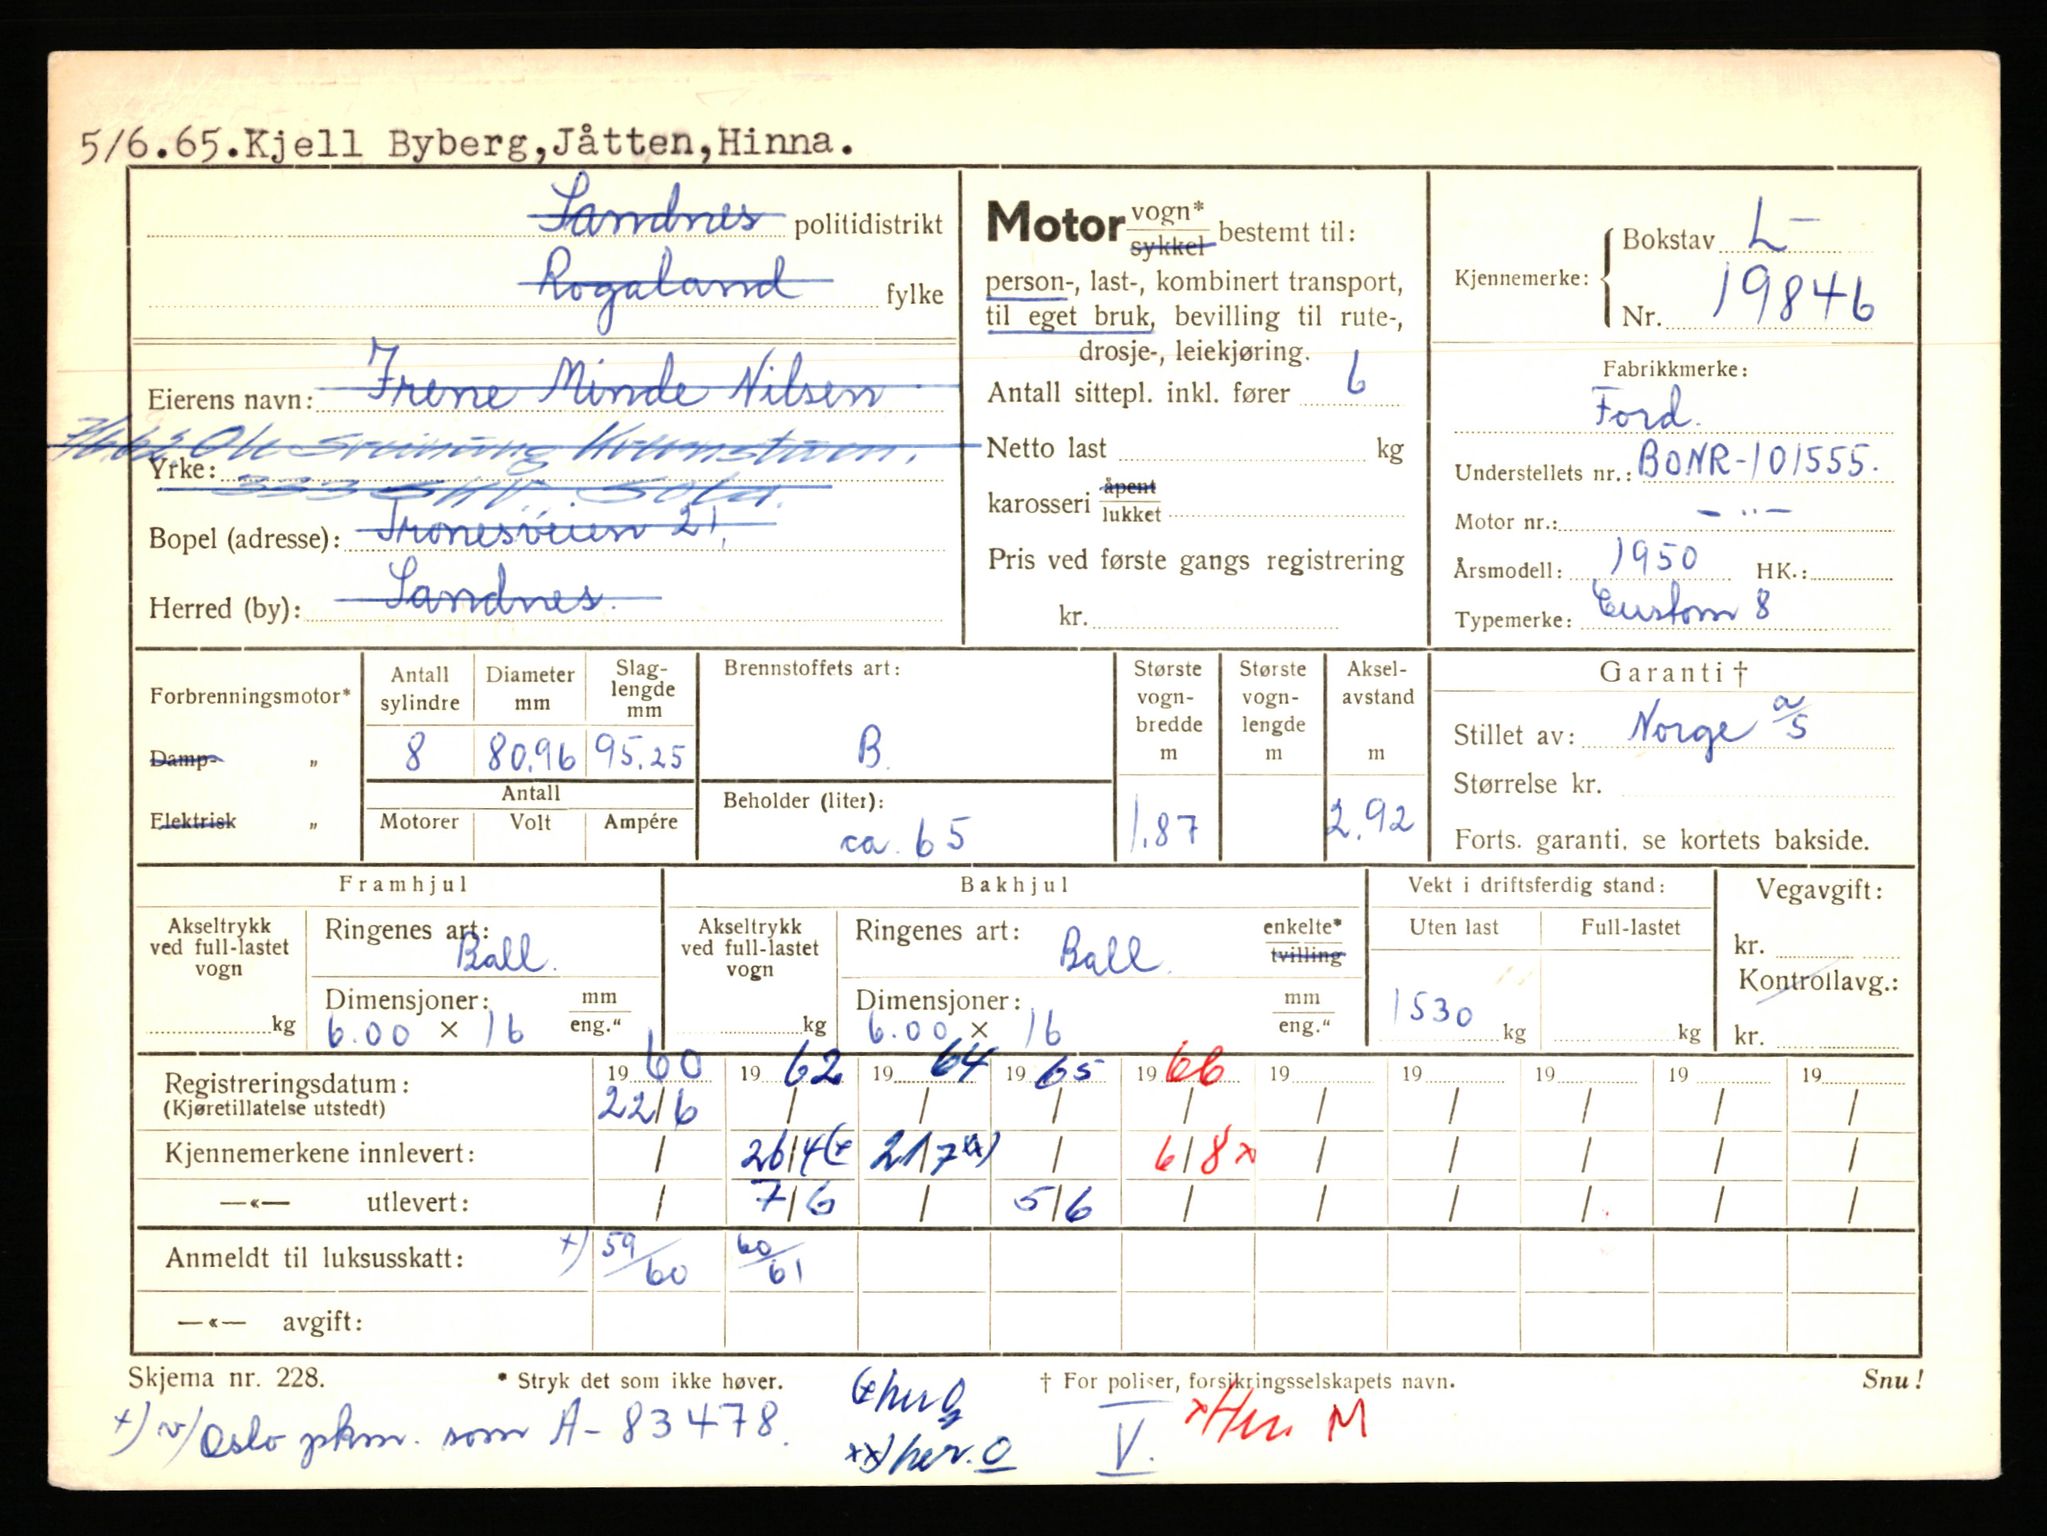 5/6.65.Kjell Byberg,Jåtten,Hinna.
Sandnes politidistrikt
Rogaland fylke
Eierens navn: Irene Minde Nilsen
7/6.62 Ole
Yrke: Sola.
Bopel (adresse): Tronesveien 21,
Herred (by): Sandnes.
Motor vogn* sykkel bestemt til:
person-, last-, kombinert transport,
til eget bruk, bevilling til rute-,
drosje-, leiekjøring.
Antall sittepl. inkl. fører 6
Netto last kg
karosseri åpent lukket
Pris ved første gangs registrering
kr.
Kjennemerke: Bokstav L-
Nr. 19846
Fabrikkmerke:
Ford.
Understellets nr.: BONR-101555.
Motor nr.: - " -
Årsmodell: 1950 HK.:
Typemerke: Custom 8
Forbrenningsmotor*
Damp- „
Elektrisk „
Antall sylindre
8
Diameter mm
80,96
Slag-
lengde
mm
95,25
Antall
Motorer Volt Ampére
Brennstoffets art:
B.
Beholder (liter):
ca. 65
Største
vogn-
bredde
m
1,87
Største
vogn-
lengde
m
Aksel-
avstand
m
2,92
Garanti †
Stillet av: Norge a/s
Størrelse kr.
Forts. garanti, se kortets bakside.
Framhjul
Akseltrykk
ved full-lastet
vogn
kg
Ringenes art:
Ball.
Dimensjoner: mm
6.00 × 16 eng.“
Bakhjul
Akseltrykk
ved full-lastet
vogn
kg
Ringenes art: enkelte*
Ball. tvilling
Dimensjoner: mm
6.00 × 16 eng.“
Vekt i driftsferdig stand:
Uten last Full-lastet
1530 kg kg
Vegavgift:
kr.
Kontrollavg.:
kr.
Registreringsdatum: 19 60 19 62 19 64 19 65 19 66 19 19 19 19 19
(Kjøretillatelse utstedt) 22/6 / / / / / / / / /
Kjennemerkene innlevert: / 26/4 (x 21/7 xx) / 6/8 x / / / / /
—«— utlevert: / 7/6 / 5/6 / / / / / /
Anmeldt til luksusskatt: x) 59/60 60/61
—«— avgift:
Skjema nr. 228. * Stryk det som ikke høver. † For poliser, forsikringsselskapets navn. Snu!
x) v/ Oslo pkm. som A-83478.
(x her O
xx) her. O
V.
x Her. M